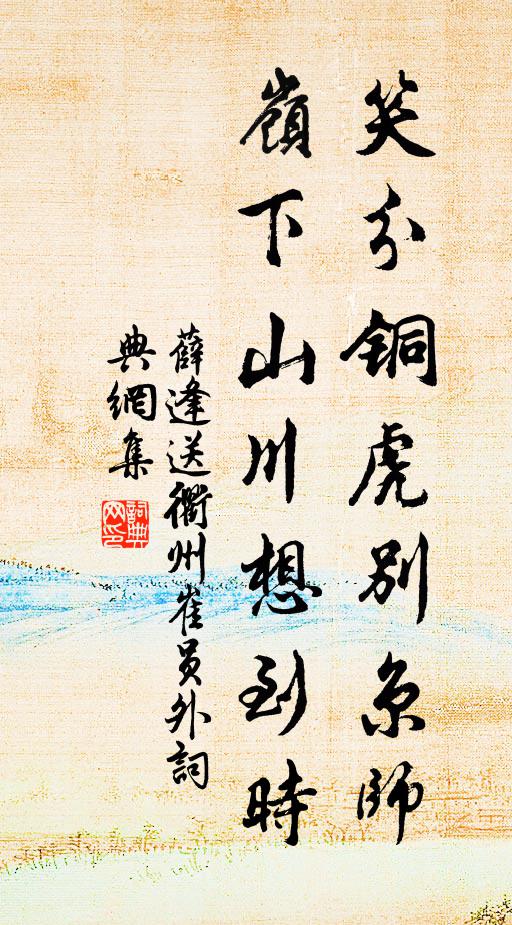 笑分铜虎别京師
嶺下山川想到時
薛逢送衢州崔員外詞
典網集
詞典网印